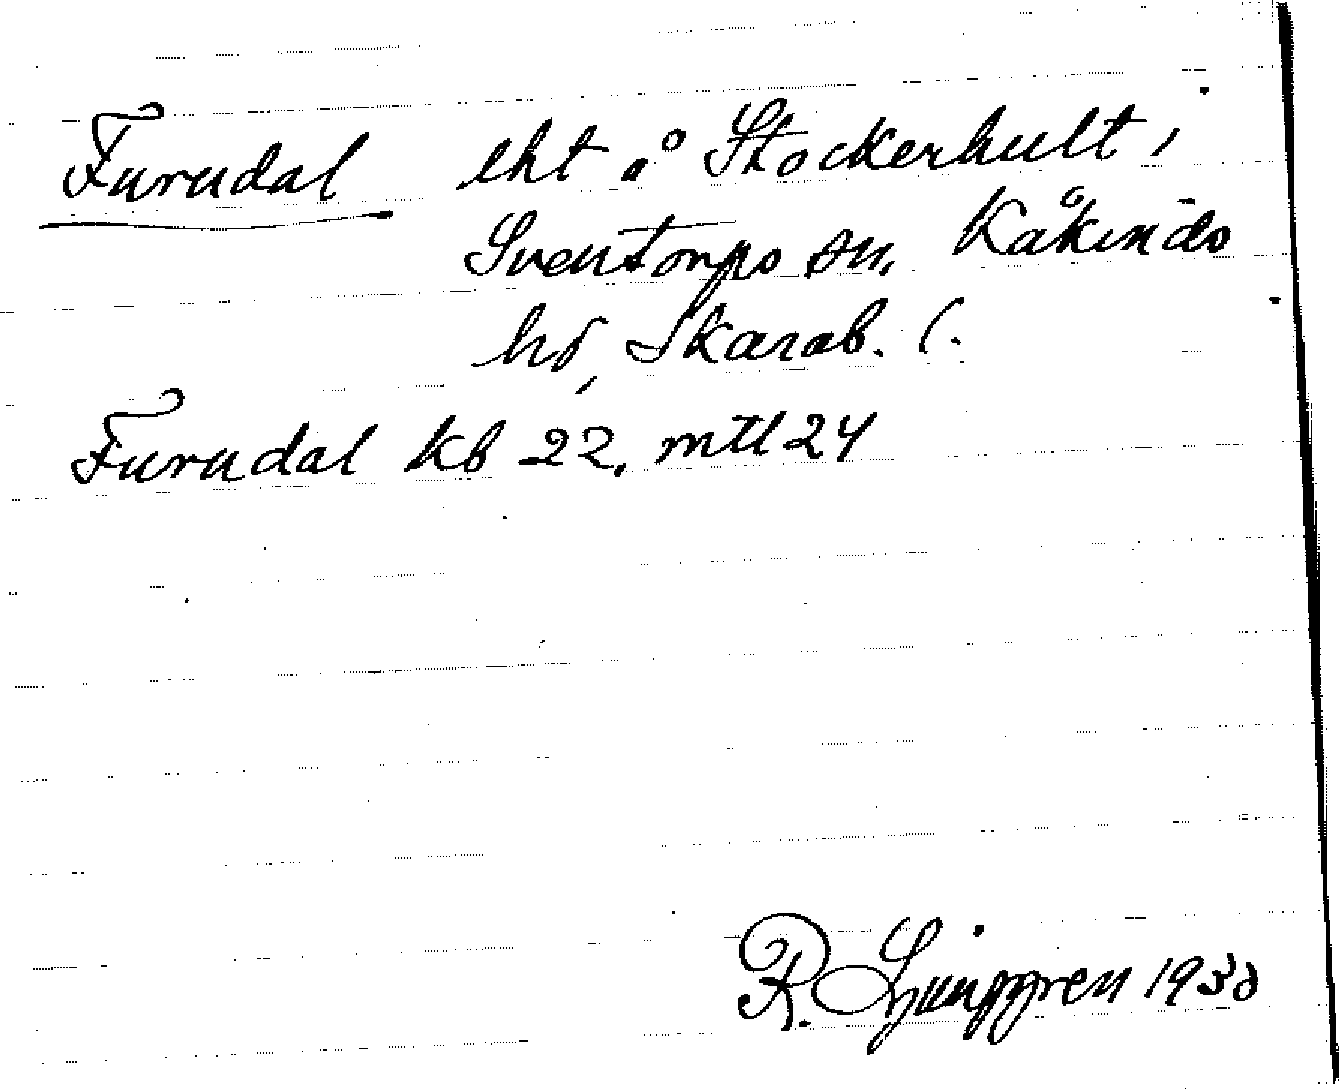 Furudal lht å Stockerhult i
Sventorps sn, Kåkinds
hd, Skarab. l.
Furudal kb 22, mtl 24
R. Ljunggren 1930